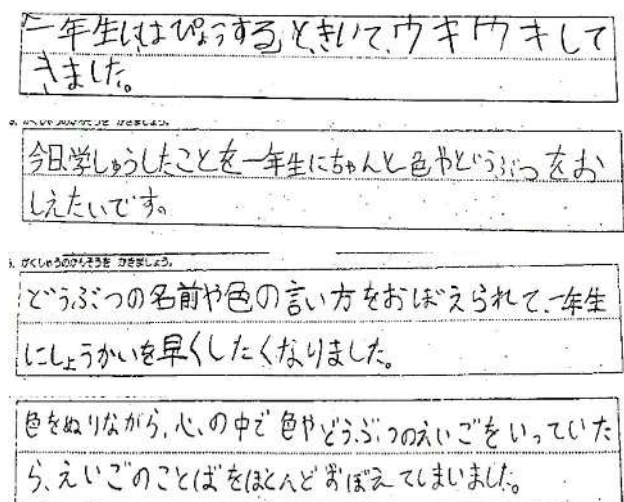 一年生にはぴょうする、ときいて、ウキウキして
きました。
がくしゅうのかんそうを かきましょう。
今日、学しゅうしたことを一年生にちゃんと色やどうぶつをお
しえたいです。
がくしゅうのかんそうを かきましょう。
どうぶつの名前や色の言い方をおぼえられて、一年生
にしょうかいを早くしたくなりました。
色をぬりながら、心の中で色やどうぶつのえいごをいっていた
ら、えいごのことばをほとんどおぼえてしまいました。